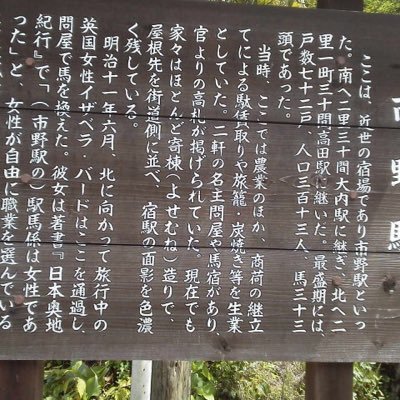 市野駅
ここは、近世の宿場であり市野駅といっ
た。南へ二里三十間大内駅に継ぎ、北へ二
里一町三十間、高田駅に継いだ。最盛期には、
戸数七十二戸、人口三百十三人、馬三十三
頭であった。
当時、ここでは農業のほか、商荷の継立
てによる駄賃取りや旅籠・炭焼き等を生業
としていた。二軒の名主問屋や馬宿があり、
官よりの高札が掲げられていた。現在でも
家々はほとんど寄棟(よせむね)造りで、
屋根先を街道側に並べ、宿駅の面影を色濃
く残している。
明治十一年六月、北に向かって旅行中の
英国女性イザベラ・バードはここを通過し、
問屋で馬を換えた。彼女は著書『日本奥地
紀行』で「(市野駅の)駅馬係は女性であ
った」と、女性が自由に職業を選んでいる